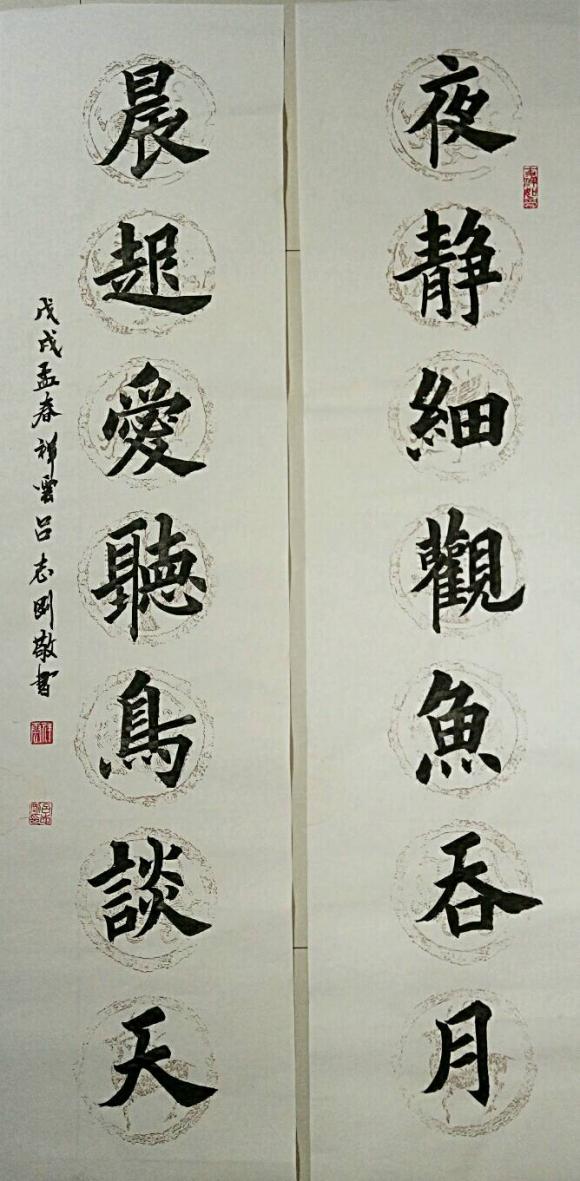 夜静細觀魚吞月
晨起愛聽鳥談天
戊戌孟春祥雲吕志刚敬書